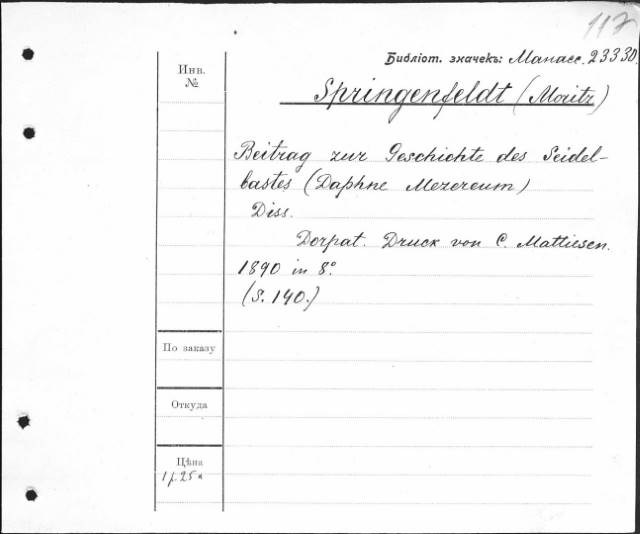 117
Библіот. значекъ: Манасс. 23330.
Инв.
№
Springenfeldt (Moritz)
Beitrag zur Geschichte des Seidel-
bastes (Daphne Mezereum)
Diss.
Dorpat. Druck von C. Mattiesen.
1890 in 8°.
(S. 140.)
По заказу
Откуда
Цѣна
1 р. 25 к